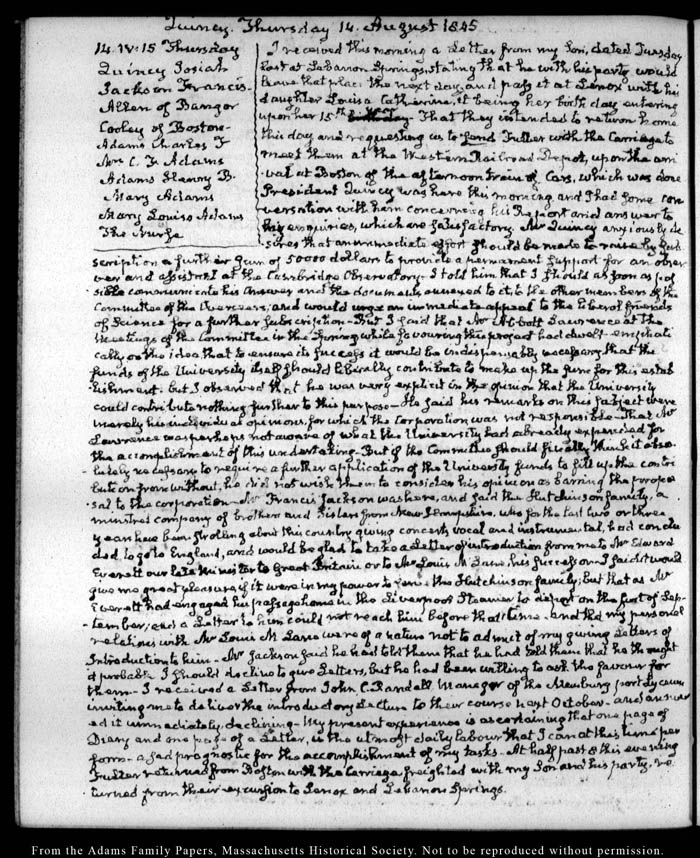 Quincy. Thursday 14. August 1845
14. IV:15 Thursday
Quincy Josiah
Jackson Francis-
Allen of Bangor
Cooley of Boston
Adams Charles F
Mrs C. F. Adams
Adams Henny B.
Mary Adams
Mary Louisa Adams
The Nurse
I received this morning a Letter from my Son, dated Tuesday
last at Lebanon Springs, stating that he with his party would
leave that place the next day, and pass it at Lenox with his
daughter Louisa Catherine, it being her birth day entering
upon her 15th. That they intended to return home
this day and requesting us to send Fuller with the Carriage to
meet them at the Western Railroad Depot, upon the arri
val at Boston of the afternoon train of Cars, which was done
President Quincy was here this morning, and I had some con
versation with him concerning his Report and answer to
my enquiries, which are satisfactory. Mr Quincy anxiously de
sires that an immediate effort should be made to raise by sub
scription a further sum of 50000 dollars to provide a permanent support for an obser
ver and assistant at the Cambridge Observatory. I told him that I should as soon as pos
sible communicate his Answer and the documents annexed to it, to the other members of the
Committee of the Overseers, and would urge an immediate appeal to the liberal friends
of Science for a further subscription- But I said that Mr Abbott Lawrence at the
Meetings of the Committee in the Spring while favouring this project had dwelt emphati
cally on the idea that to ensure its success it would be indispensably necessary that the
funds of the University itself should liberally contribute to make up the sum for this estab
lishment. but I observed that he was very explicit in the opinion that the University
could contribute nothing further to this purpose- He said his remarks on this subject were
merely his individual opinions, for which the Corporation was not responsible- That Mr
Lawrence was perhaps not aware of what the University had already expended for
the accomplishment of this undertaking- But if the Committee should finally think it abso
lutely necessary to require a further application of the University funds to fill up the contri
bution from without, he did not wish them to consider his opinion as barring the propo
sal to the corporation- Mr Francis Jackson was here, and said the Hutchinson family, a
minstrel company of brothers and Sisters from New Hampshire, who for the last two or three
years have been strolling about this country giving concerts vocal and instrumental, had conclu
ded to go to England, and would be glad to take a Letter of introduction from me to Mr Edward
Everett our late Minister to Great Britain or to Mr Louis M. Lane, his successor- I said it would
give me great pleasure if it were in my power to serve the Hutchinson family; but that as Mr
Everett had engaged his passage home in the Liverpool Steamer to depart on the first of Sep-
tember, and a Letter to him could not reach him before that time- and that my personal
relations with Mr Louis M. Lane were of a nature not to admit of my giving Letters of
Introduction to him- Mr Jackson said he had told them that he had told them that he thought
it probable I should decline to give Letters, but he had been willing to ask the favour for
them- I received a Letter from John C. Randall Manager of the Newburyport Lyceum
inviting me to deliver the introductory Lecture to their course next October- and answer
ed it immediately, declining- My present experience is ascertaining that one page of
Diary and one page of a Letter, is the utmost daily labour that I can at this time per
form- a sad prognostic for the accomplishment of my tasks- At half past 8 this evening
Fuller returned from Boston with the Carriage freighted with my Son and his party, re
turned from their excursion to Lenox and Lebanon Springs.
From the Adams Family Papers, Massachusetts Historical Society. Not to be reproduced without permission.